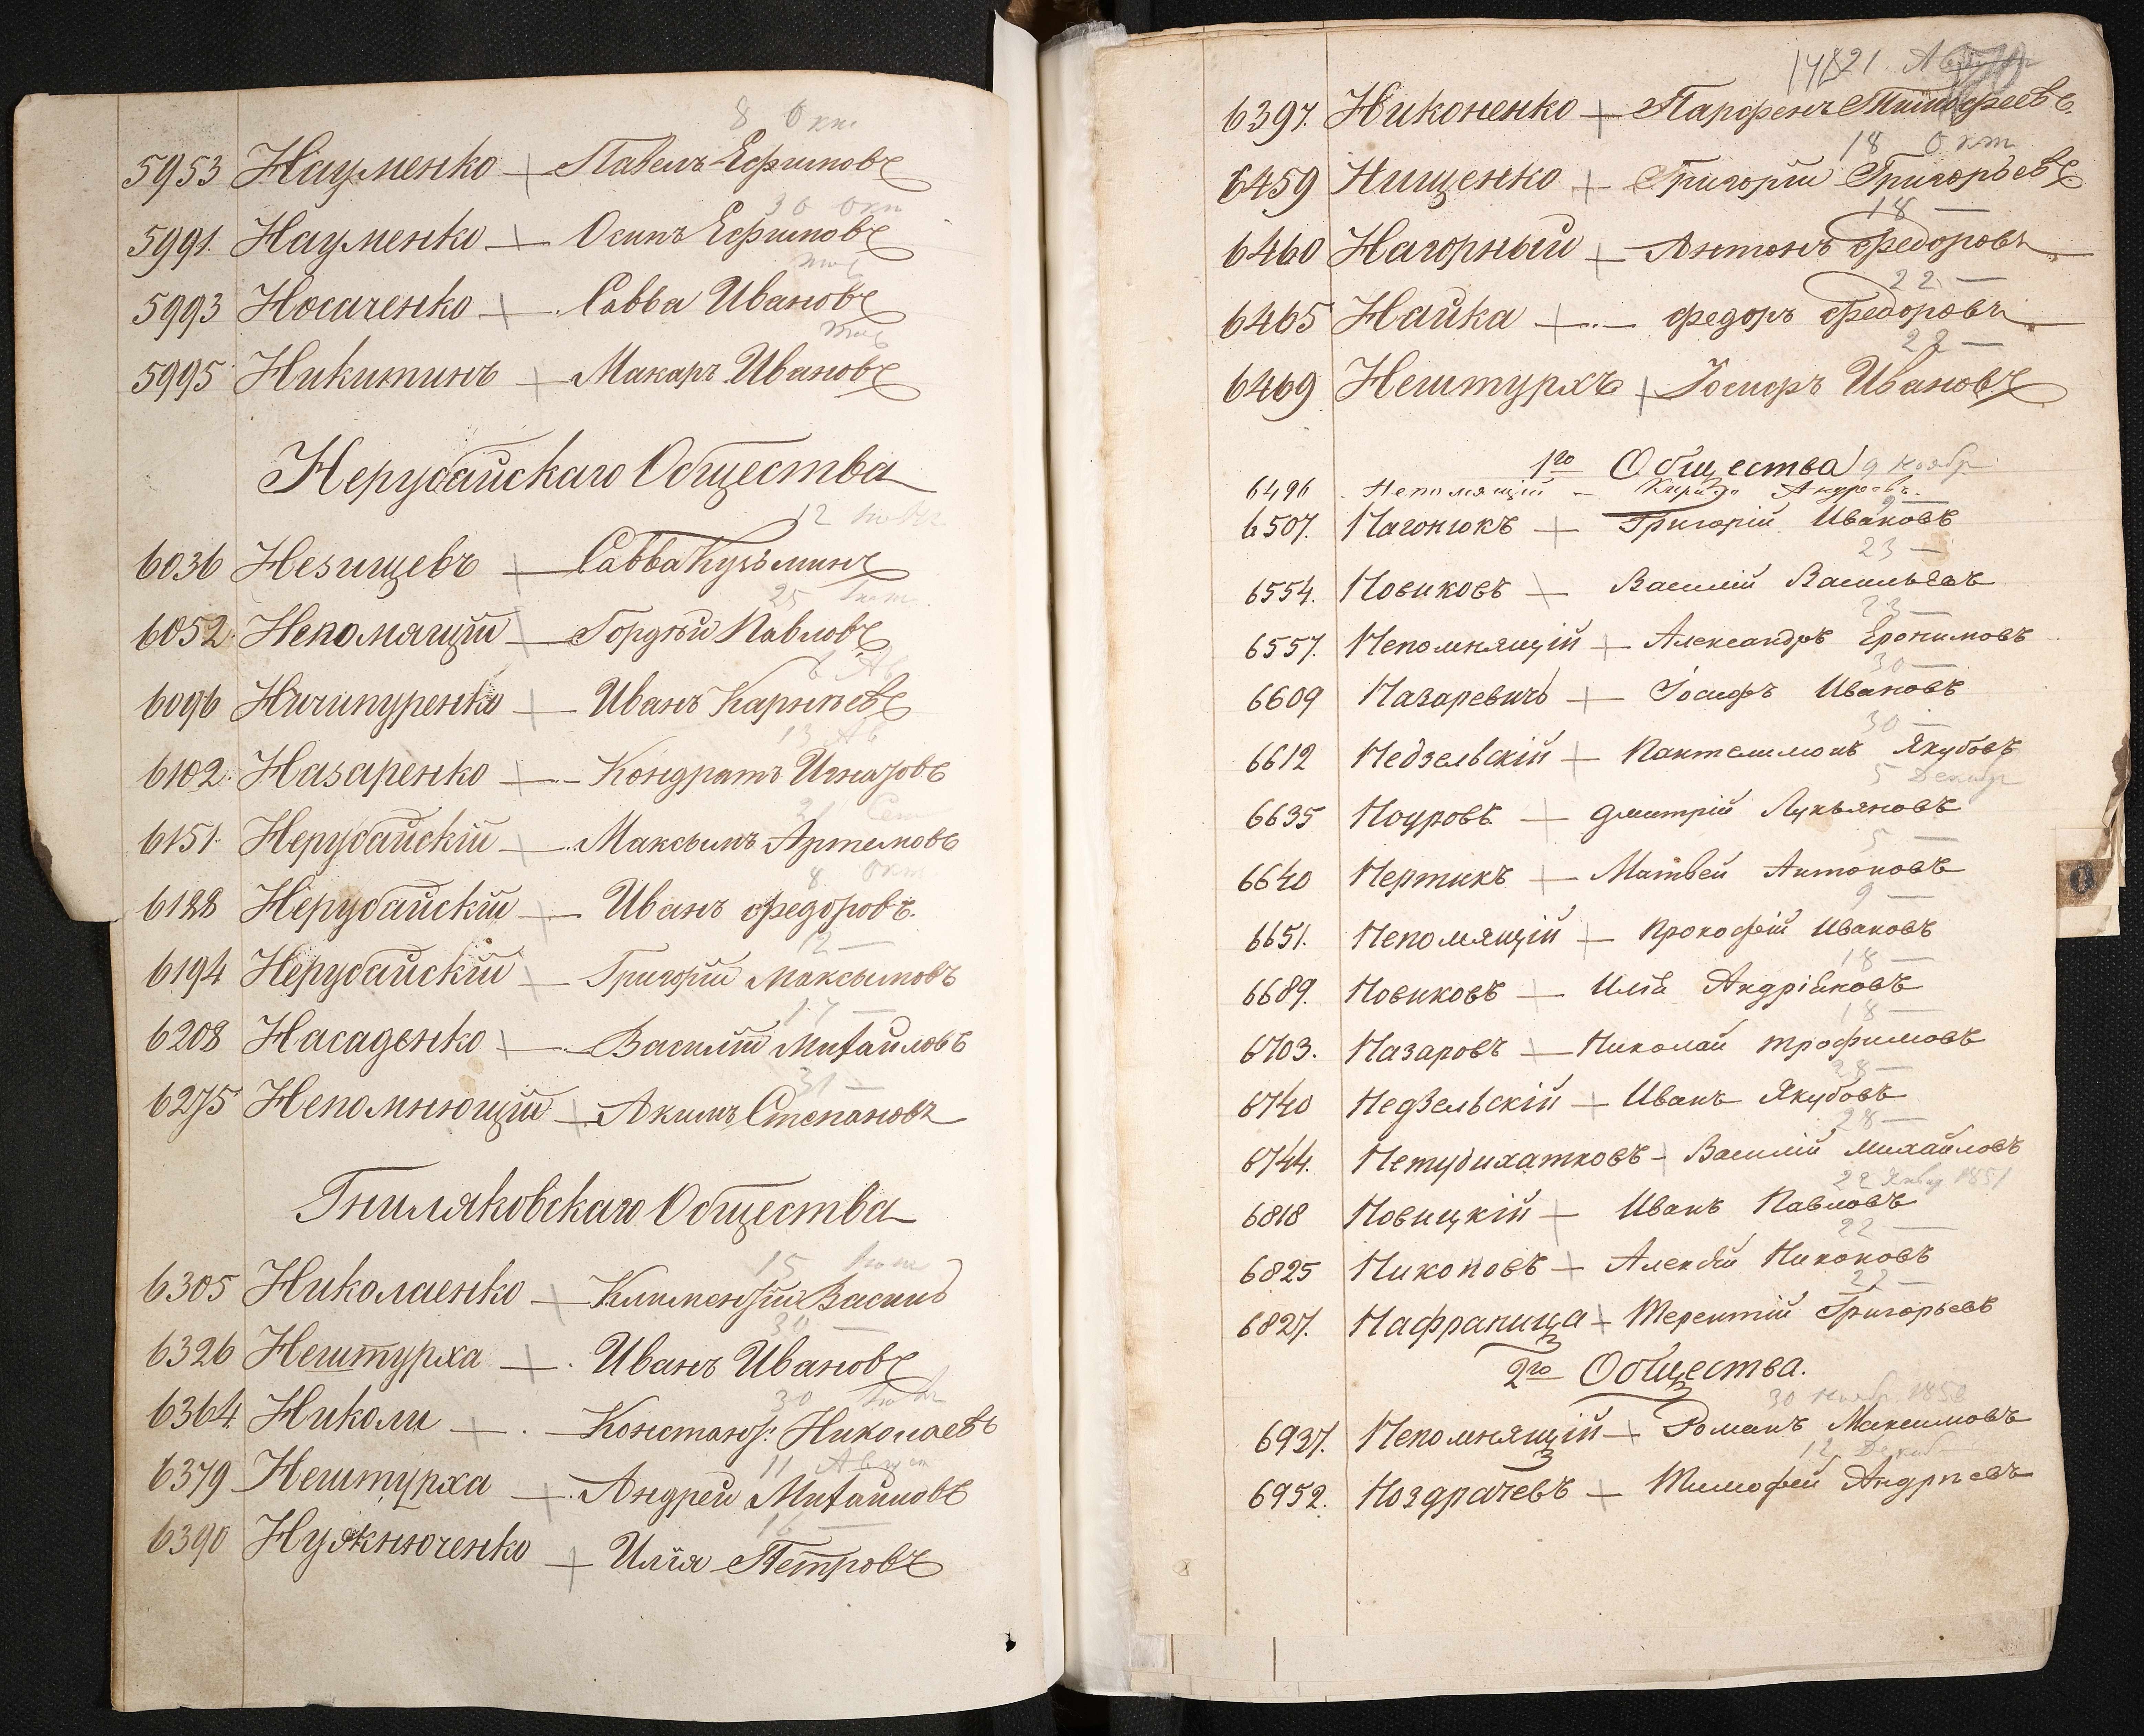 8 Окт
5953 Науменко — Павелъ Ефимовъ
30 Окт
5991. Науменко — Осипъ Ефимовъ
5993 Носаченко — Савва Ивановъ
5995 Никитинъ — Макаръ Ивановъ
Нерубайскаго Общества
12
6036 Незищевъ — Савва Кузьминъ
25
6052. Непомящій — Гордѣй Павловъ
6096 Ничипуренко — Иванъ Карпѣевъ
13 Ав
6102. Назаренко — Кондратъ Игнатовъ
6151. Нерубайскій — Максымъ Артемовъ
8 Окт
6188 Нерубайскій — Иванъ Федоровъ.
12 —
6194 Нерубайскій — Григорій Максымовъ
17 —
6208 Насаденко — Василій Михайловъ
31 —
6275 Непомнющій — Акимъ Степановъ
Гниляковскаго Общества
15
6305 Николаенко — Климентій Васил
30 —
6326 Нештурха — Иванъ Ивановъ
30
6364 Николи — Констант: Николаевъ
11 Август
6379 Нештурха — Андрей Михайловъ
16 —
6390 Нужнюченко — Илія Петровъ
21
6397. Никоненко — Парфенъ Тимофеевъ
18 Окт
6459 Нищенко — Григорій Григорьевъ
18 —
6460 Нагорный — Антонъ Федоровъ
22 —
6465 Найка — Федоръ Федоровъ
22 —
6469 Нештурхъ — Іосифъ Ивановъ
1го Общества 9 ноябр
6496 Непомящій — Андреевъ.
9 —
6507. Нагонюкъ — Григорій Ивановъ
23 —
6554. Новиковъ — Василій Васильевъ
23 —
6557. Непомнящій — Александръ Еронимовъ
30 —
6609 Назаревичъ — Іосифъ Ивановъ
30 —
6612 Недзельскій — Пантелимонъ Якубовъ
5 Декабр
6635 Ноуровъ — Дмитрій Лукьяновъ
5 —
6640 Нертикъ — Матвей Антоновъ
9 —
6651. Непомящій — Прокофій Ивановъ
18 —
6689. Новиковъ — Илія Андріановъ
18 —
6703. Назаровъ — Николай Трофимовъ
28 —
6740 Недзельскій — Иванъ Якубовъ
28 —
6744. Нетудихатковъ — Василій Михайловъ
22 Январ 1851
6818 Новицкій — Иванъ Павловъ
22 —
6825 Никоновъ — Алексѣй Никоновъ
22 —
6827. Нафраница — Терентій Григорьевъ
2го Общества.
30 Ноябр 1850
6937. Непомнящій — Романъ Максимовъ
12 Декаб
6952. Ноздрачевъ — Тимофей Андрѣевъ